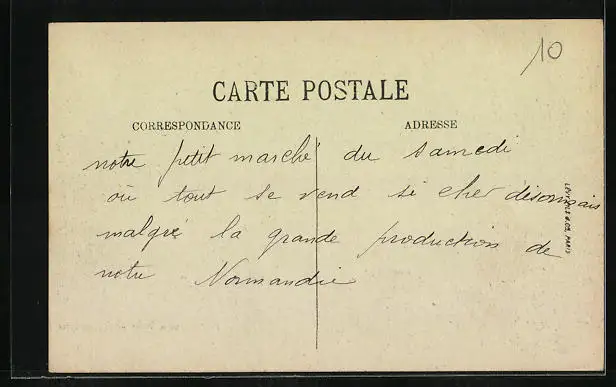 10
CARTE POSTALE
CORRESPONDANCE
ADRESSE
notre petit marché du samedi
où tout se vend si cher désormais
malgré la grande production de
notre Normandie